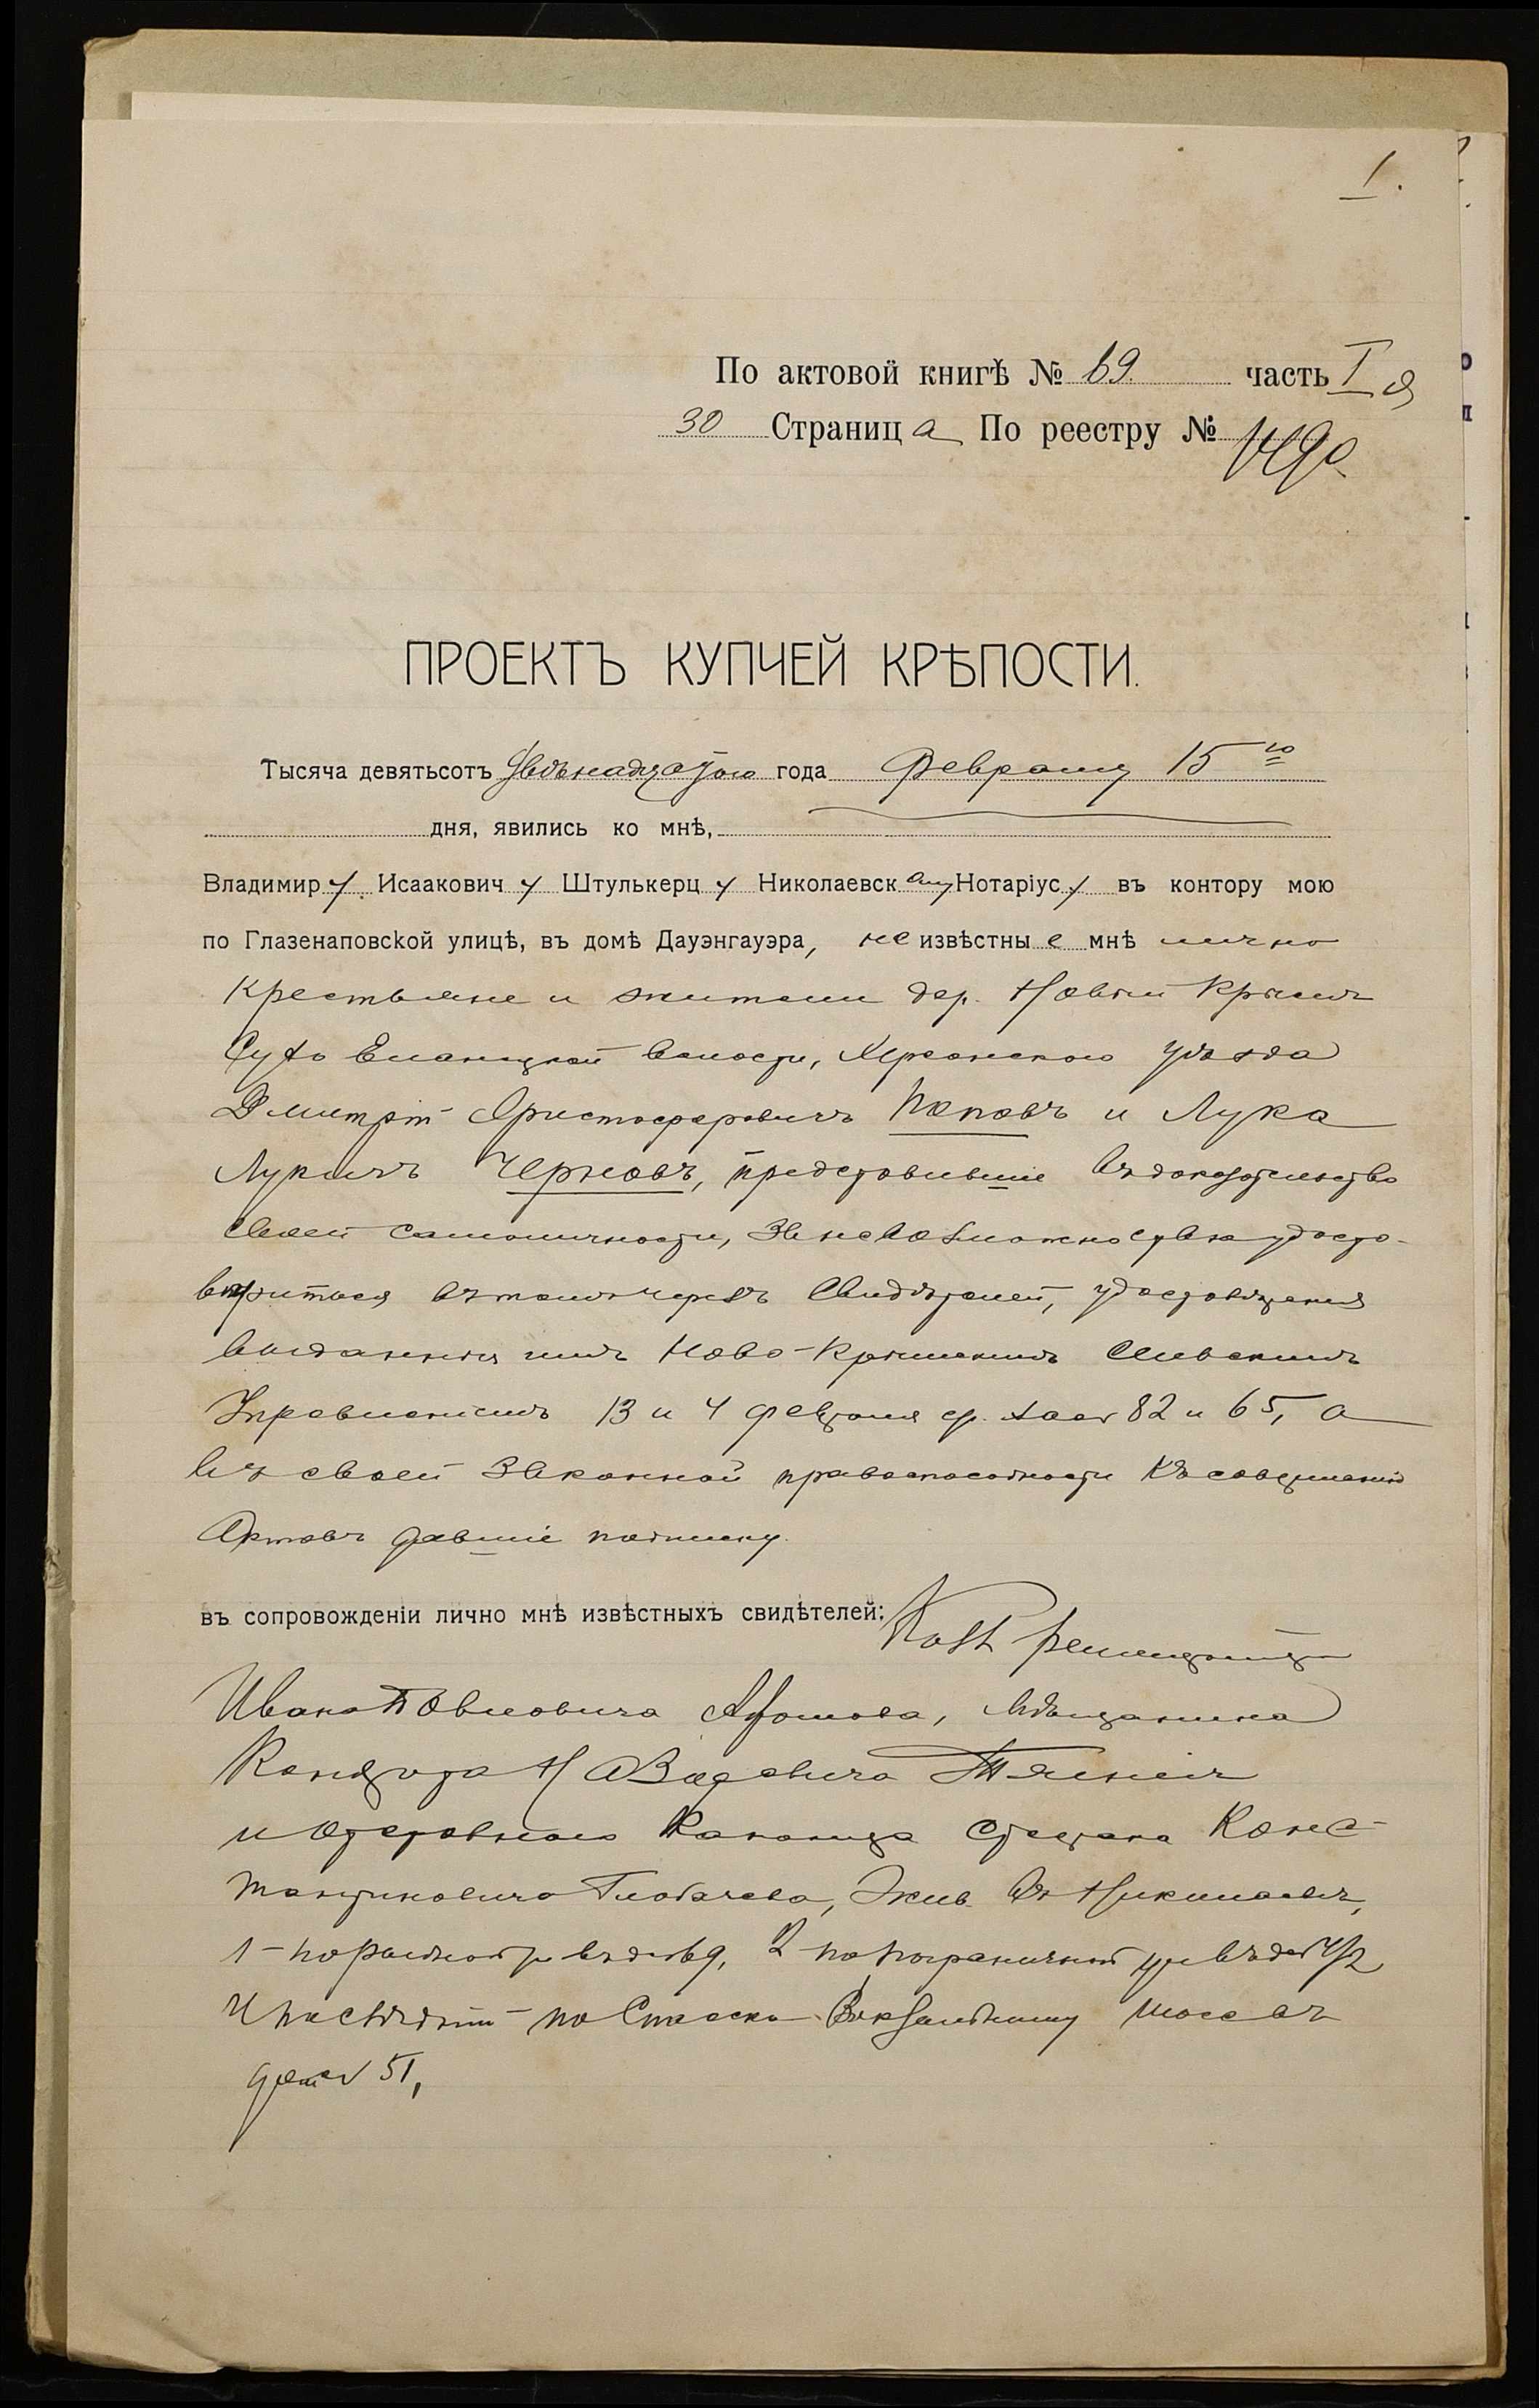 1.
По актовой книгѣ № 69. часть I я
30 Страница По реестру № 1490.
ПРОЕКТЪ КУПЧЕЙ КРѢПОСТИ.
Тысяча девятьсотъ двѣнадцатаго года Февраля 15го
дня, явились ко мнѣ,
Владимиру Исааковичу Штулькерцу Николаевскому Нотаріусу въ контору мою
по Глазенаповской улицѣ, въ домѣ Дауэнгауэра, неизвѣстные мнѣ лично
крестьяне и жители дер. Новый Крымъ
Сухо Еланецкой волости, Херсонского уѣзда
Дмитрій Христофоровичъ Поповъ и Лука
Лукичъ Черновъ, представившіе въ доказательство
своей самоличности, за невозможностью удосто-
вѣриться въ томъ черезъ свидѣтелей, удостовѣренія
выданныя имъ Ново-Крымскимъ Сельскимъ
Управленіемъ 13 и 4 февраля за 82 и 65, а
въ своей законной правоспособности къ совершенію
актовъ давшіе подписку.
въ сопровожденіи лично мнѣ извѣстныхъ свидѣтелей:
Ивана Павловича мѣщанина
Кондрата
и отставного Степана Конс-
тантиновича Глобачева, жив. въ Николаевѣ,
1-й по 9, 2 по Пограничной ул въ домѣ
и послѣдній по Спасско Вокзальному шоссе въ
домѣ № 51,